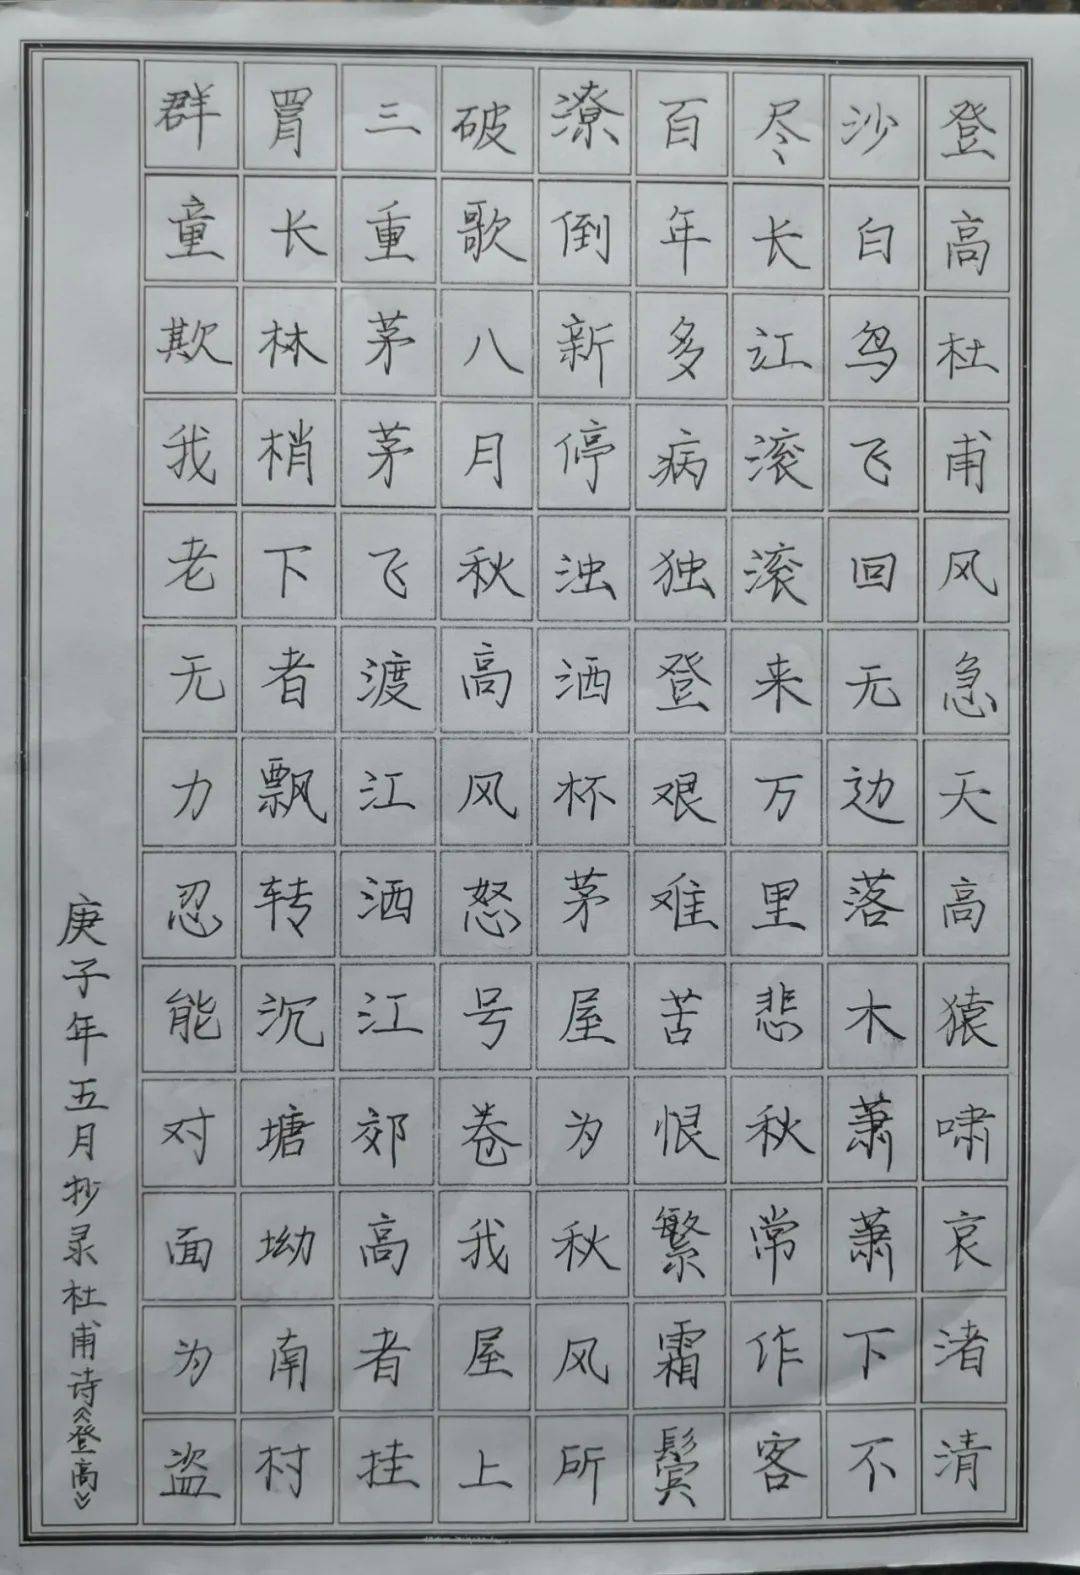 登高杜甫风急天高猿啸哀渚清
沙白鸟飞回无边落木萧萧下不
尽长江滚滚来万里悲秋常作客
百年多病独登艰难苦恨繁霜鬓
潦倒新停浊洒杯茅屋为秋风所
破歌八月秋高风怒号卷我屋上
三重茅茅飞渡江洒江郊高者挂
罥长林梢下者飘转沉塘坳南村
群童欺我老无力忍能对面为盗
庚子年五月抄录杜甫诗《登高》